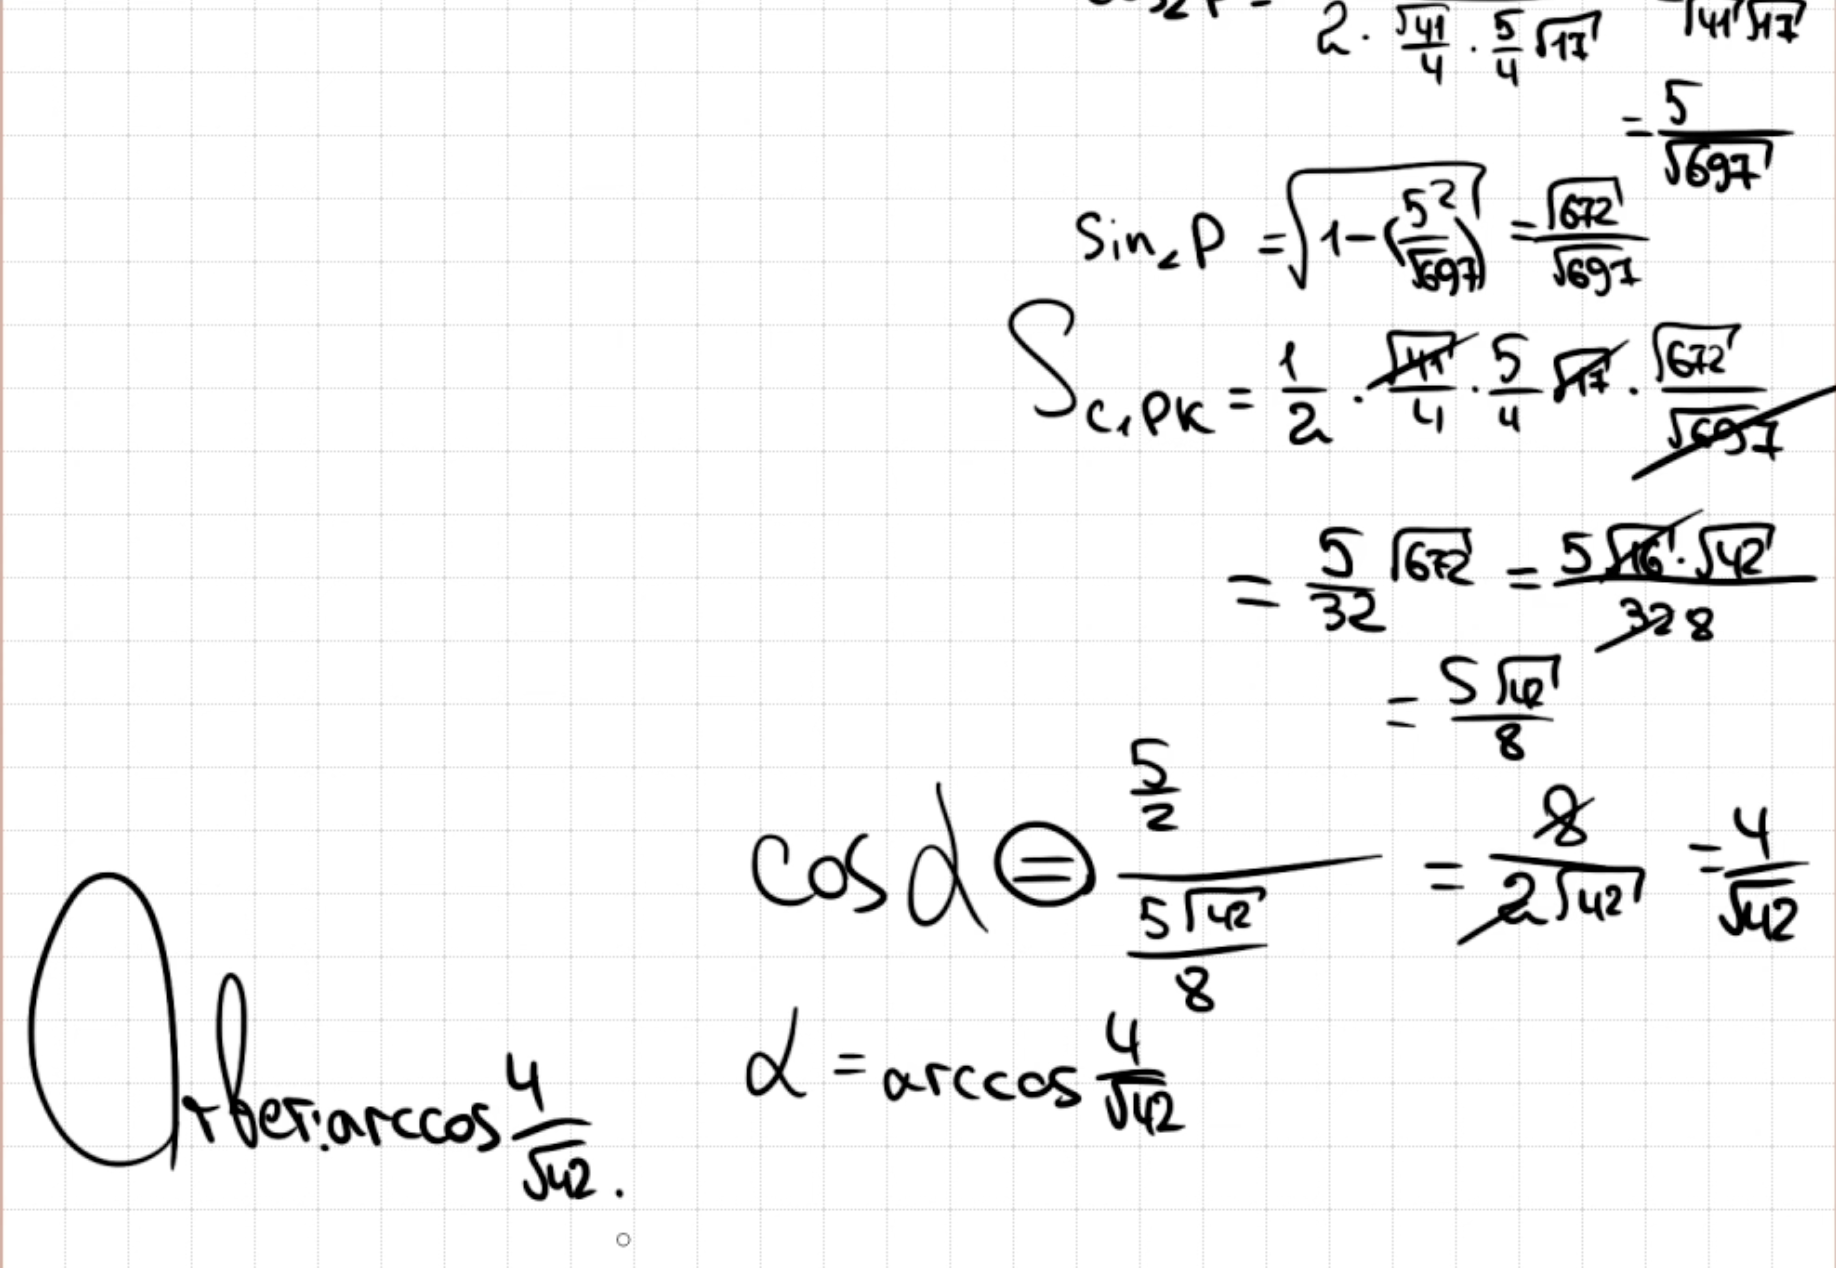 2 · √41/4 · 5/4 √17   √41 √17
= 5/√697
Sin∠P = √(1-(5/√697)²) = √672/√697
S C₁PK = 1/2 · √41/4 · 5/4 √17 · √672/√697
= 5/32 √672 = 5√16 · √42/32 8
= 5√42/8
cos α = (5/2)/(5√42/8) = 8/2√42 = 4/√42
α = arccos 4/√42
Ответ: arccos 4/√42.